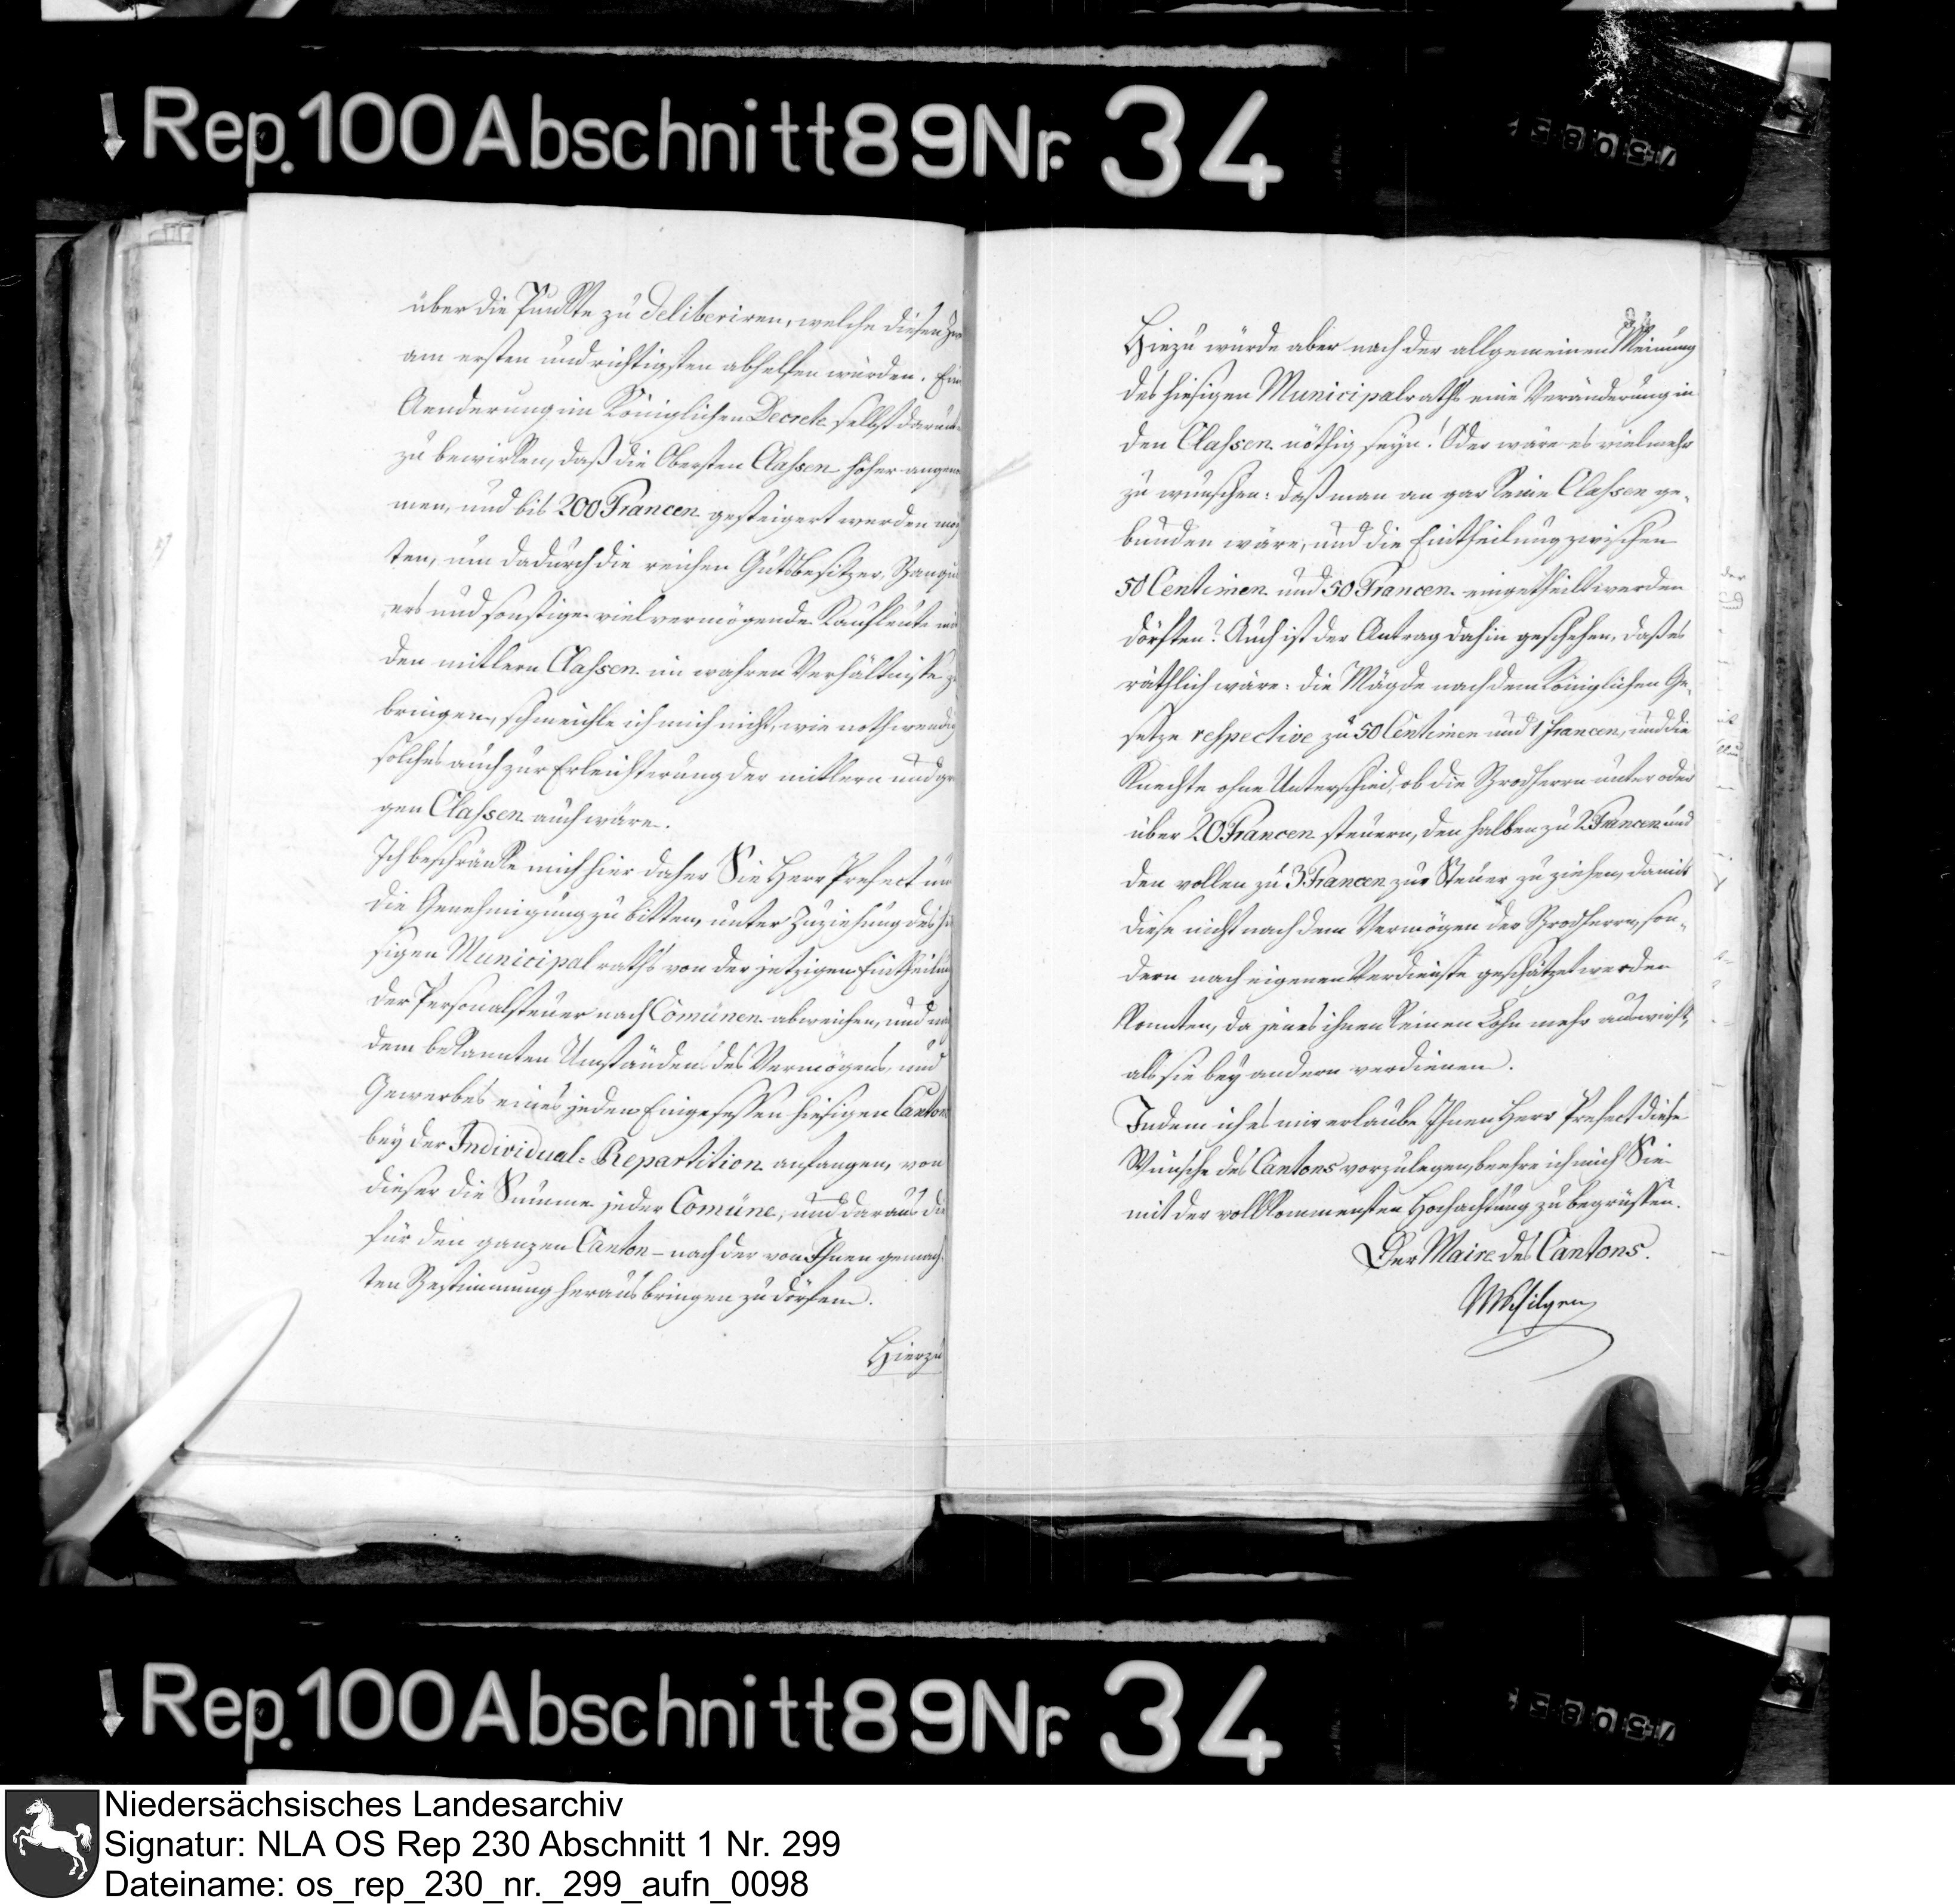 Rep. 100 Abschnitt 89 Nr. 34
über die Punkte zu deliberiren, welche diesen
am ersten und richtigsten abhelfen würden. Eine
Aenderung im Königlichen Decrete selbst
zu bewirken, daß die Obersten Classen höher angenom
men, und bis 200 Francen gesteigert werden möch
ten, um dadurch die reichen Gutsbesitzer, Banqui
ers und sonstige vielvermögende Kaufleute
den mitlern Classen im wahren Verhältniße zu
bringen, schmeichle ich mich nicht, wie nothwendig
solches auch zur Erleichterung der mittlern und
gen Classen auch wäre.
Ich beschränke mich hier daher Sie Herr Prefect um
die Genehmigung zu bitten, unter Zuziehung des hie
sigen Municipalraths von der jetzigen Eintheilung
der Personalsteuer nach Comünen abweichen, und
dem bekannten Umständen des Vermögens, und
Gewerbes eines jeden Eingesessen hiesigen Cantons
bey der Individual-Repartition anfangen, von
dieser die Summe jeder Comüne, und daraus die
für den ganzen Canton - nach der von Ihnen gemach
ten Bestimmung herausbringen zu dörfen.
Hierzu
Hiezu würde aber nach der allgemeinen Meinung
des hiesigen Municipalraths eine Veränderung in
den Classen nöthig seyn! Oder wäre es vielmehr
zu wünschen: daß man an gar keine Classen ge-
bunden wäre, und die Eintheilung zwischen
50 Centimen und 50 Francen eingetheilt werden
dörften? Auch ist der Antrag dahin geschehen, daß es
räthlich wäre: die Mägde nach dem Königlichen Ge-
setze respective zu 50 Centimen und 1 francen, und die
Knechte ohne Unterschied, ob die Brodherrn unter oder
über 20 Francen steuern, den halben zu 2 Francen und
den vollen zu 3 Francen zur Steuer zu ziehen, damit
diese nicht nach dem Vermögen der Brodherrn, son-
dern nach eigenen Verdienste geschätzet werden
könnten, da jenes ihnen keinen Lohn mehr auswirft,
als sie bey andern verdienen.
Indem ich es mir erlaube Ihnen Herr Prefect diese
Wünsche des Cantons vorzulegen, beehre ich mich Sie
mit der vollkommensten Hochachtung zu begrüssen.
Der Maire des Cantons.
Rep. 100 Abschnitt 89 Nr. 34
Niedersächsisches Landesarchiv
Signatur: NLA OS Rep 230 Abschnitt 1 Nr. 299
Dateiname: os_rep_230_nr._299_aufn_0098